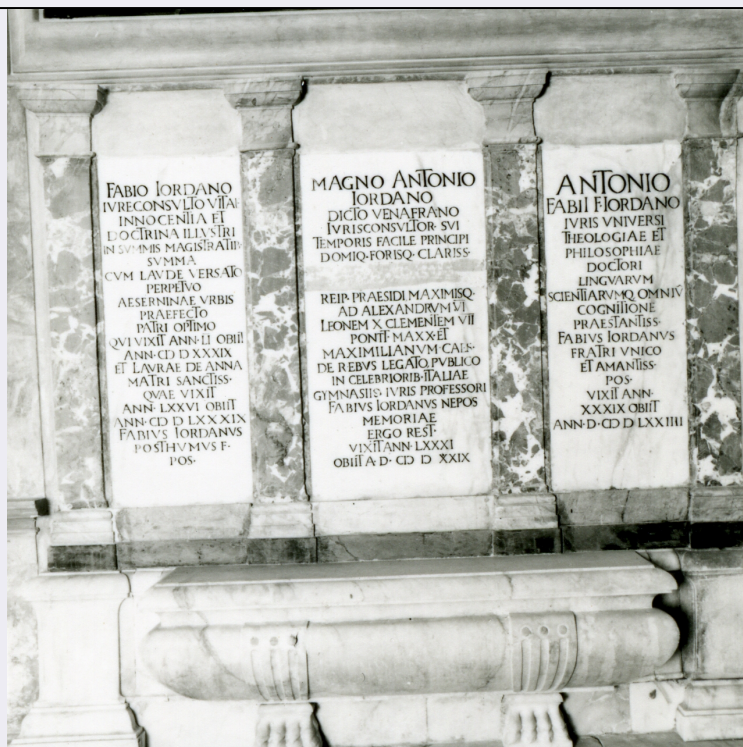 FABIO IORDANO
IVRECONSVLTO VITAE
INNOCENTIA ET
DOCTRINA ILLVSTRI
IN SVMMIS MAGISTRATIB
SVMMA
CVM LAVDE VERSATO
PERPETVO
AESERNINAE VRBIS
PRAEFECTO
PATRI OPTIMO
QVI VIXIT ANN· LI OBIIT
ANN· CIↃ D XXXIX
ET LAVRAE DE ANNA
MATRI SANCTISS·
QVAE VIXIT
ANN· LXXVI OBIIT
ANN· CIↃ D LXXXIX
FABIVS IORDANVS
POSTHVMVS F·
POS·
MAGNO ANTONIO
IORDANO
DICTO VENAFRANO
IVRISCONSVLTOR· SVI
TEMPORIS FACILE PRINCIPI
DOMIQ· FORISQ· CLARISS·
REIP· PRAESIDI MAXIMISQ·
AD ALEXANDRVM VI
LEONEM X CLEMENTEM VII
PONTT· MAXX· ET
MAXIMILIANVM CAES·
DE REBVS LEGATO PVBLICO
IN CELEBRIORIB· ITALIAE
GYMNASIIS· IVRIS PROFESSORI
FABIVS IORDANVS NEPOS
MEMORIAE
ERGO REST·
VIXIT ANN· LXXXI
OBIIT A· D· CIↃ D XXIX
ANTONIO
FABII F· IORDANO
IVRIS VNIVERSI
THEOLOGIAE ET
PHILOSOPHIAE
DOCTORI
LINGVARVM
SCIENTIARVMQ· OMNIV̄
COGNITIONE
PRAESTANTISS·
FABIVS IORDANVS
FRATRI VNICO
ET AMANTISS·
POS·
VIXIT ANN·
XXXIX OBIIT
ANN· D· CIↃ D LXXIIII